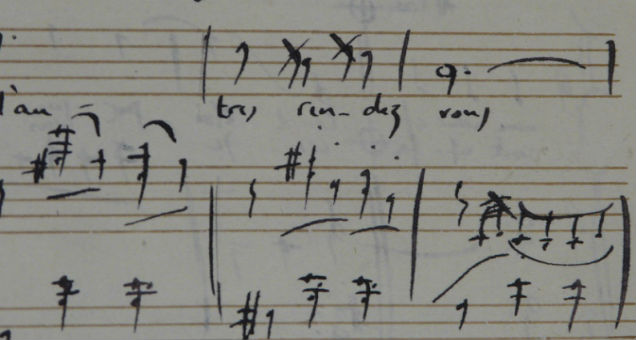 l'au - tres ren-dez vous